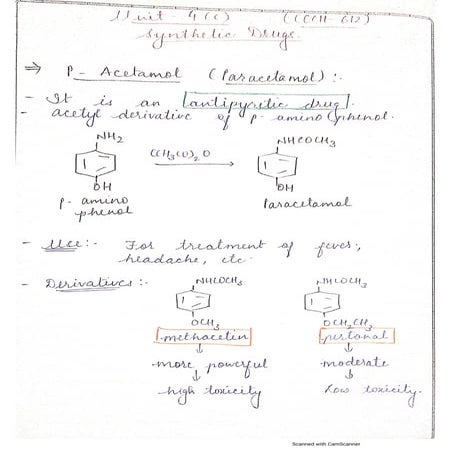 Unit - 4(c) (CCH-612)
Synthetic Drugs.
⇒ P- Acetamol (Paracetamol) :-
- It is an antipyretic drug.
- acetyl derivative of p- amino phenol.
NH₂ NHCOCH₃
(CH₃CO)₂O
OH OH
p- amino Paracetamol
phenol
- Use:- For treatment of fever,
headache, etc
- Derivatives :- NHCOCH₃ NHCOCH₃
OCH₃ OCH₂CH₃
methacetin
more powerful moderate
high toxicity Low toxicity.
Scanned with CamScanner